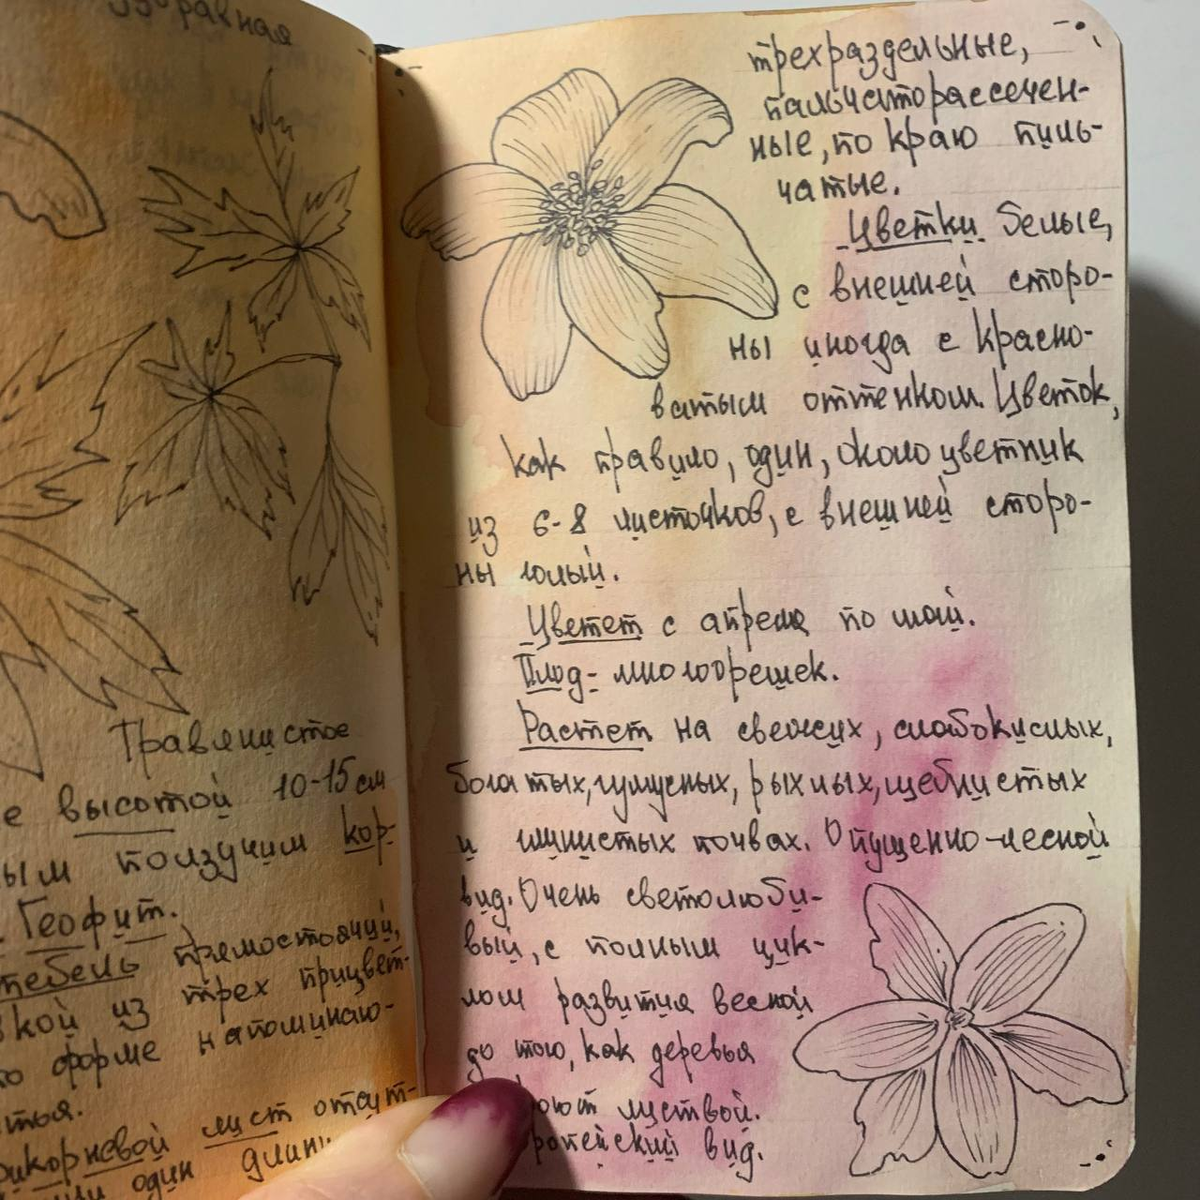 Травянистое
е высотой 10-15 см
ым ползучим кор-
. Геофит.
тебель прямостоячий,
кой из трех прицвет-
о форме напоминаю-
тья.
икорневой лист отсут-
один длин
трехраздельные,
пальчаторассечен-
ные, по краю пиль-
чатые.
Цветки белые,
с внешней сторо-
ны иногда с красно-
ватым оттенком. Цветок,
как правило, один, околоцветник
из 6-8 листочков, с внешней сторо-
ны голый.
Цветет с апреля по май.
Плод - многоорешек.
Растет на свежих, слабокислых,
богатых, гумусных, рыхлых, щебнистых
и глинистых почвах. Опушенно-лесной
вид. Очень светолюби-
вый, с полным цик-
лом развития весной
до того, как деревья
оют листвой.
ропейский вид.